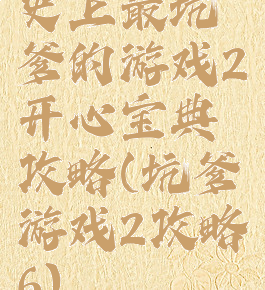 史上最坑
爹的游戏2
开心宝典
攻略(坑爹
游戏2攻略
6)